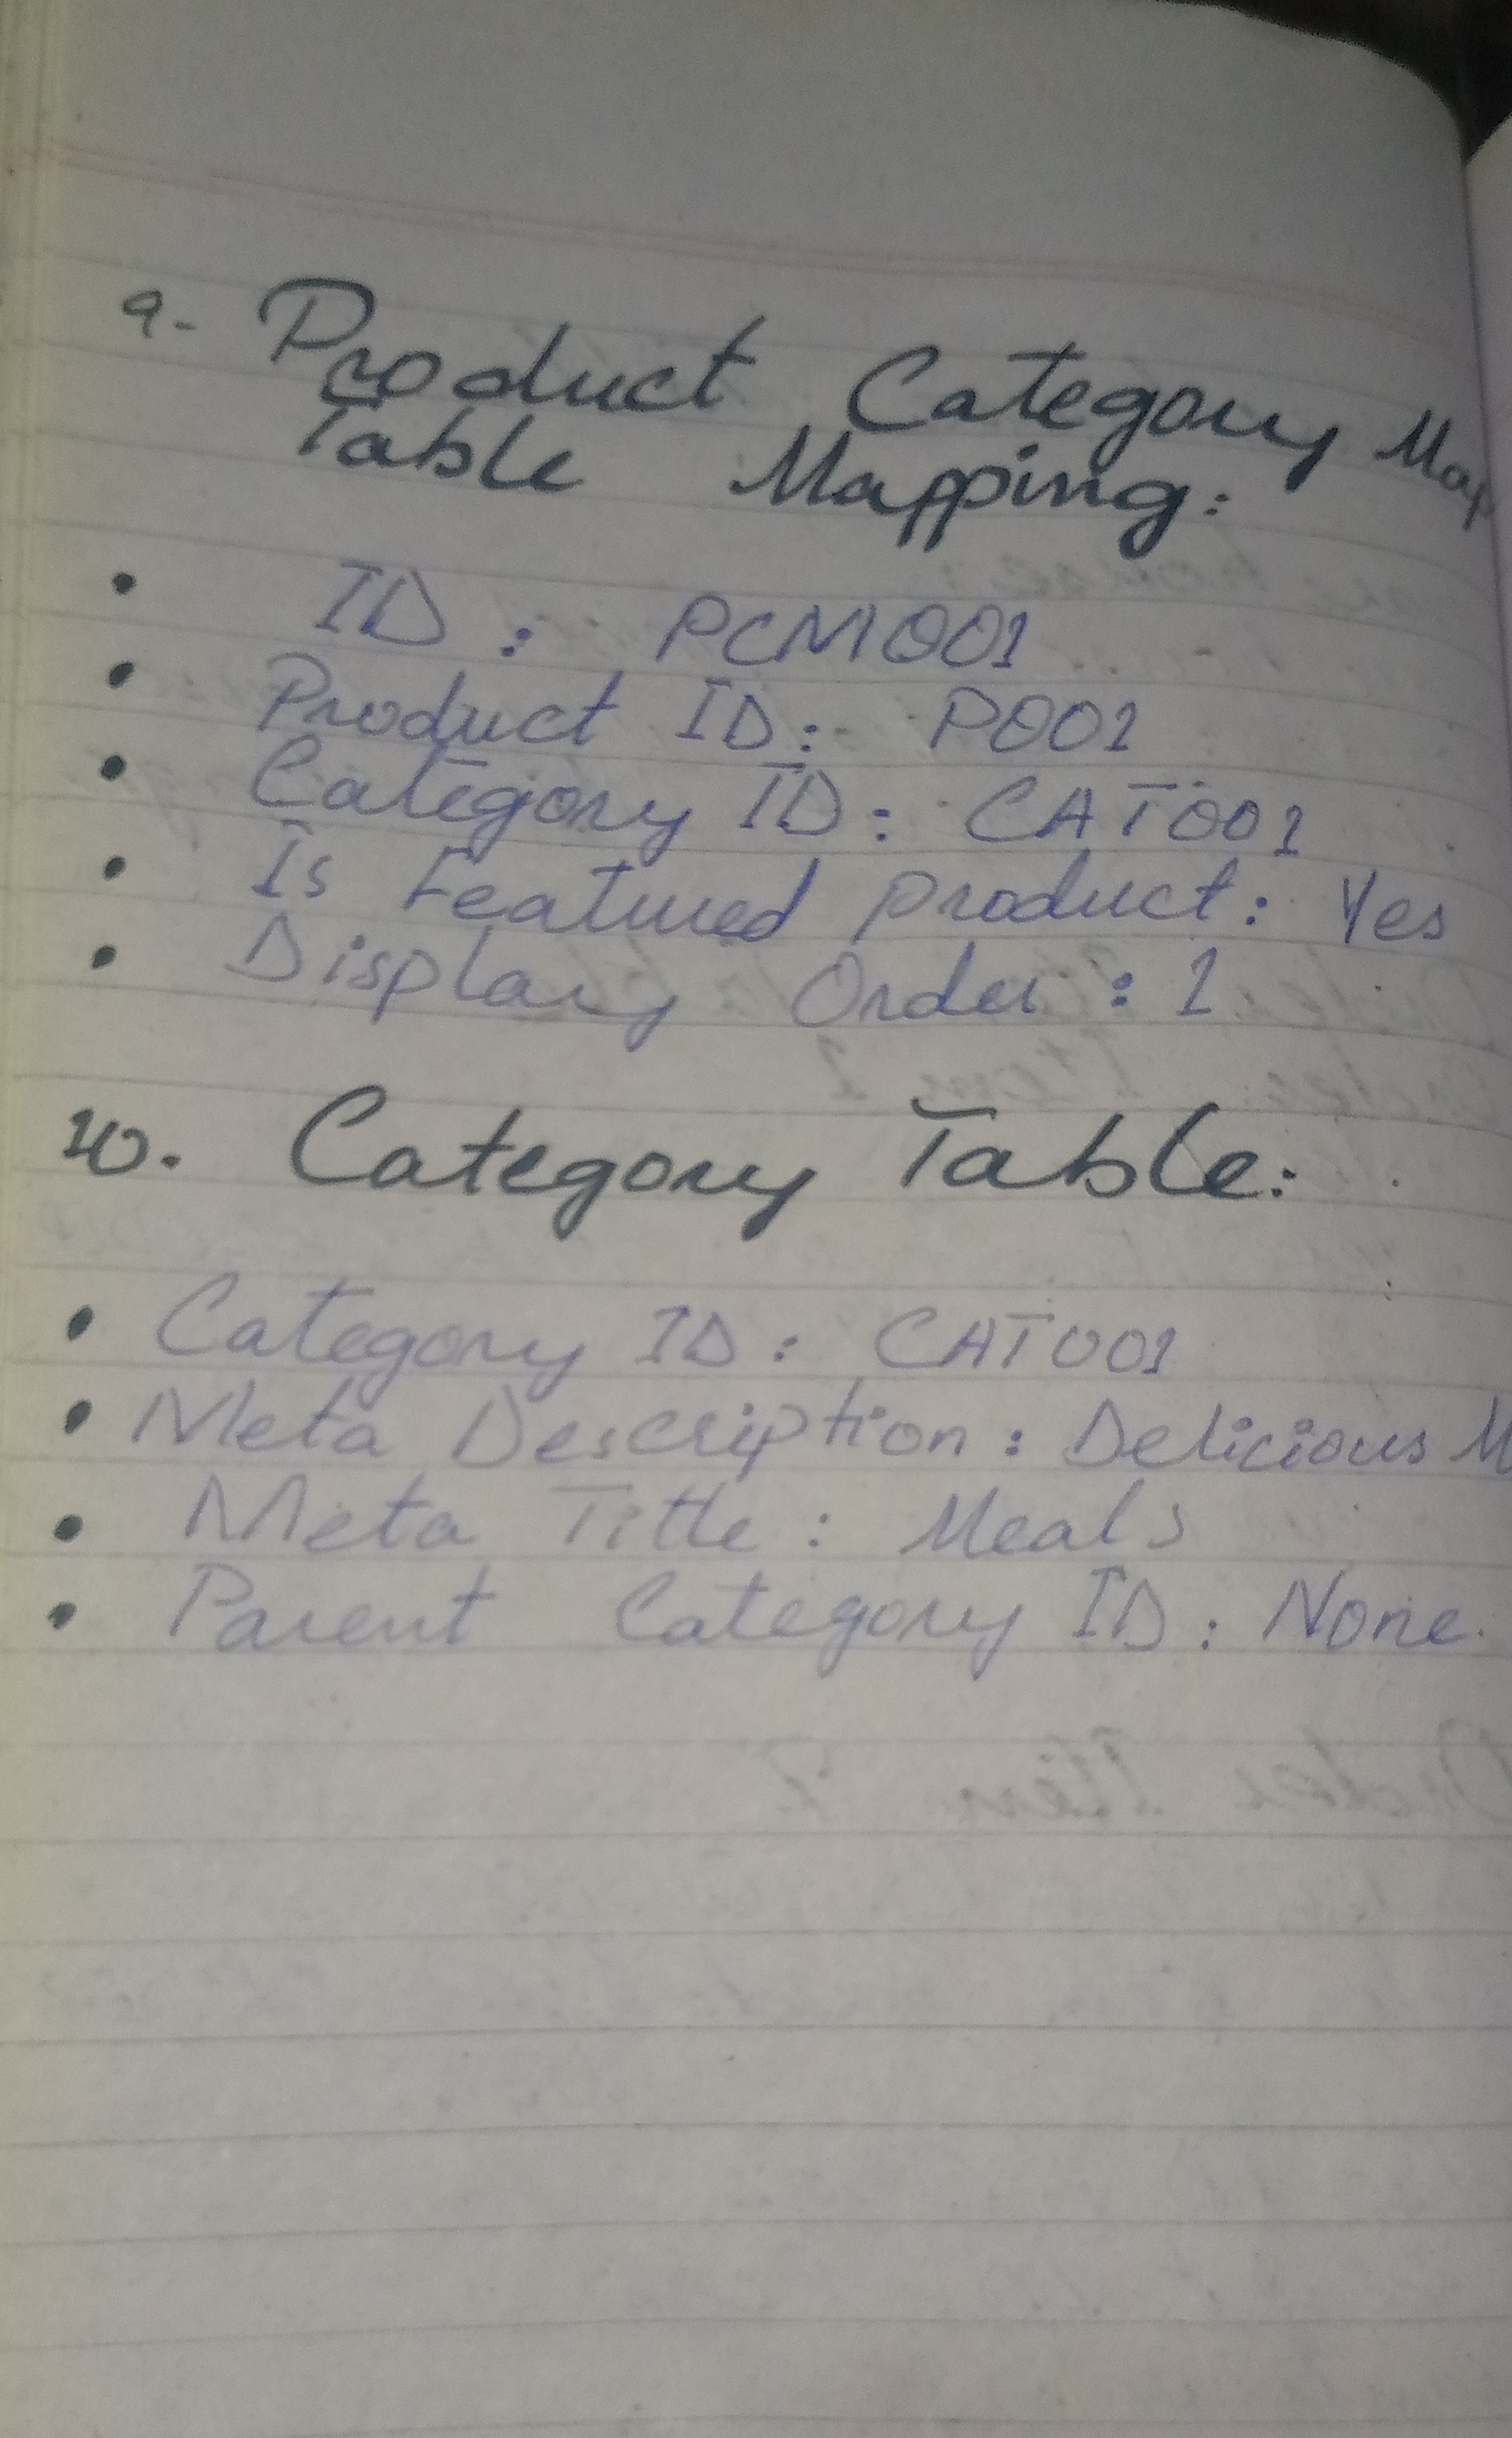 9. Product Category Map
Table Mapping:
• ID : PCM001
• Product ID: P001
• Category ID: CAT001
• Is Featured product: Yes
• Display Order : 1
10. Category Table:
• Category ID : CAT001
• Meta Description : Delicious M
• Meta Title : Meals
• Parent Category ID : None.
Order Item 2